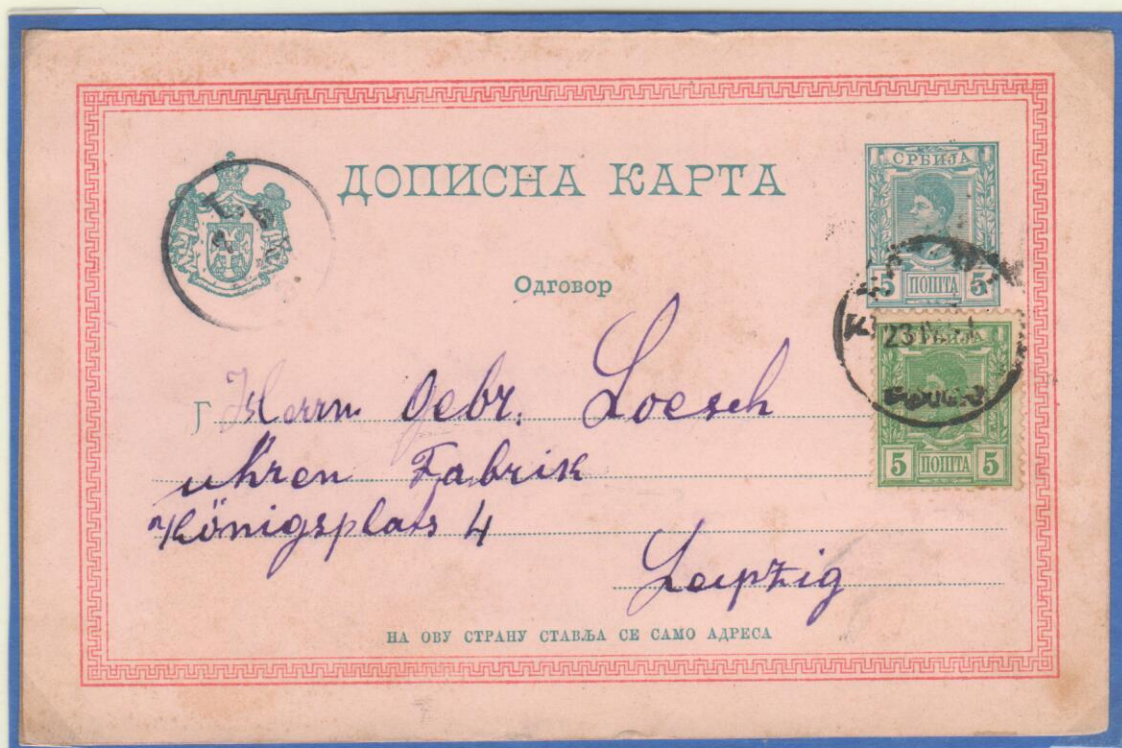 ДОПИСНА КАРТА
СРБИЈА
5 ПОШТА 5
Одговор
23
5 ПОШТА 5
Г Herrn Gebr. Loesch
uhren Fabrik
Königsplats 4
Leipzig
НА ОВУ СТРАНУ СТАВЉА СЕ САМО АДРЕСА